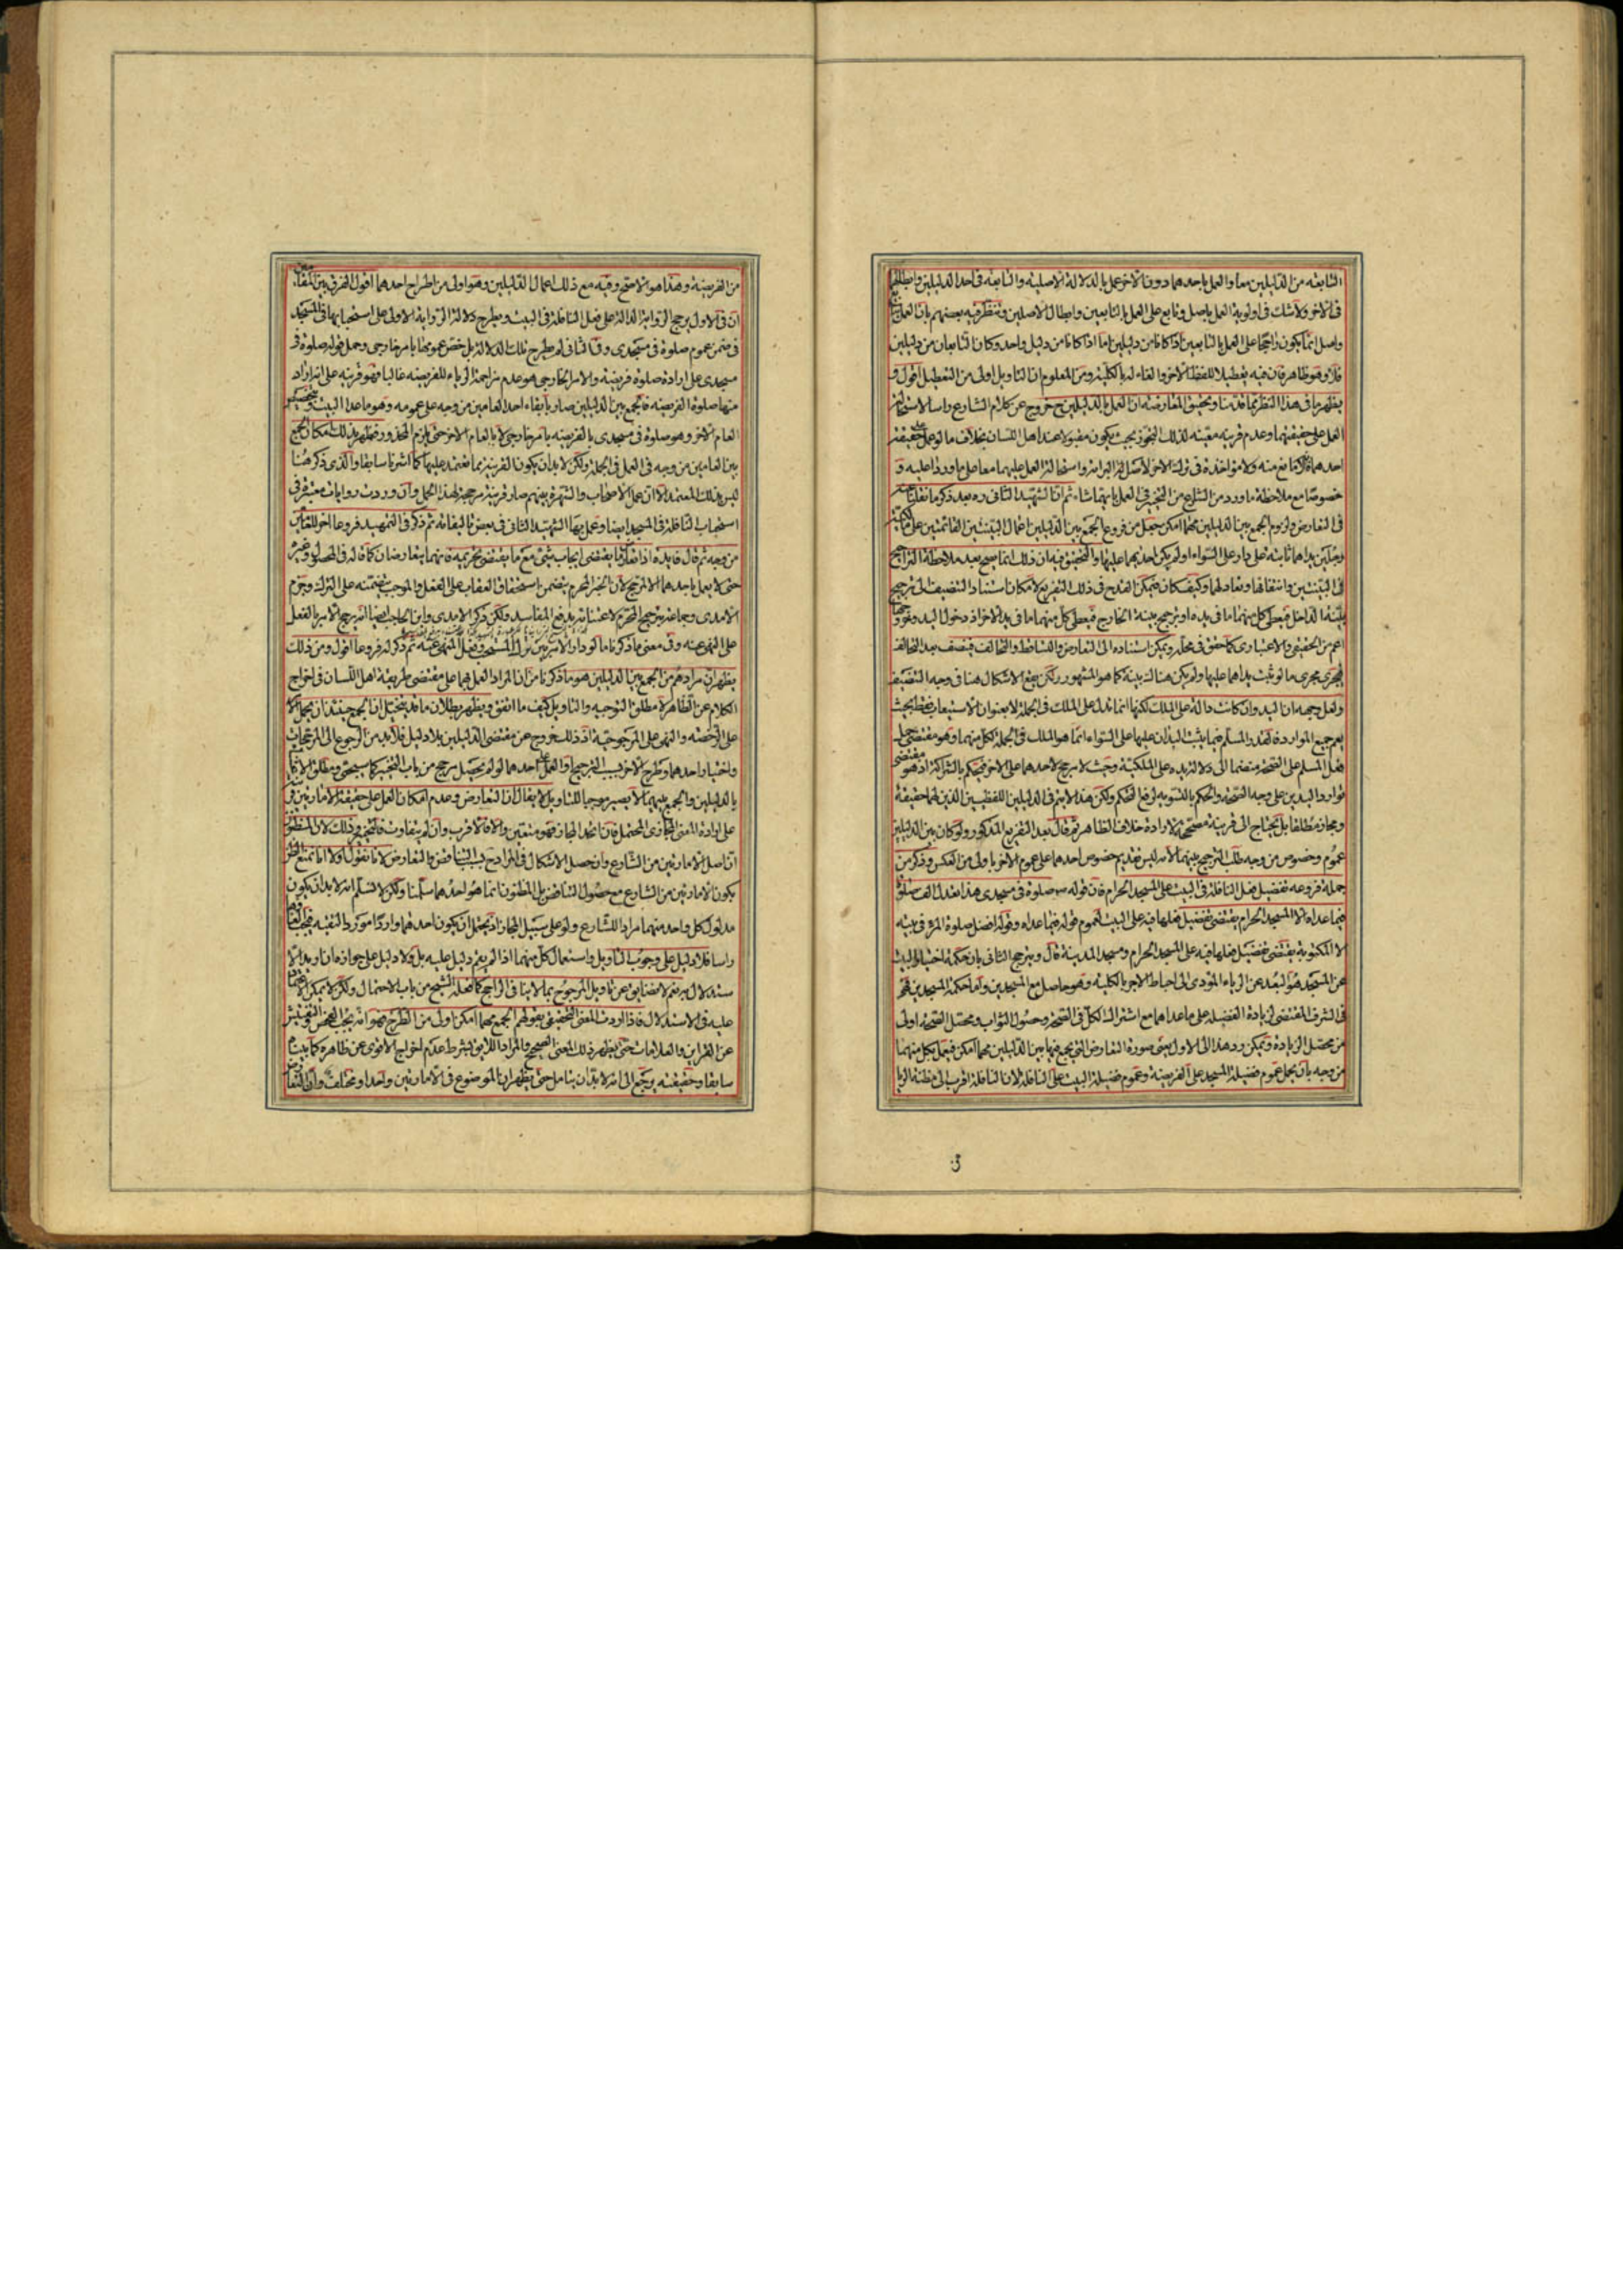 التابعة من الدليلين معا والعمل باحدهما دون الاخر عمل بالدلالة الاصلية والتابعة فى احد الدليلين وابطالهما
فى الاخر ولا شك فى اولوية العمل باصل وتابع على العمل بالتابعين وابطال الاصلين وتنظر فيه بعضهم بان العمل
واصل انما يكون راجحا على العمل بالتابعين اذا كانا من دليلين اما اذا كانا من دليل واحد وكان التابعان من دليلين
فلا وهو ظاهر فان فيه تعطيلا للفظ الاخر والغاء له بالكلية ومن المعلوم ان التاويل اولى من التعطيل اقول و
يظهر ما فى هذا النظر مما قدمنا وتحقيق المعارضة ان العمل بالدليلين ح خروج عن كلام الشارع راسا لاستحالة
العمل على حقيقتهما وعدم قرينة معينة لذلك التجوز بحيث يكون مقبولا عند اهل اللسان بخلاف ما لو عمل حقيقة
احدهما فلا مانع منه ولا مواخذة فى ترك الاخر لاصل البرائة واستحالة العمل عليهما معا على ما وردا عليه و
خصوصا مع ملاحظة ما ورد من الشارع من التخيير فى العمل بايهما شاء ثم ان الشهيد الثانى ره بعد ذكر ما نقلنا عنه
فى التعارض ولزوم الجمع بين الدليلين مهما امكن جعل من فروع الجمع بين الدليلين اعمال البينتين القائمتين على
رجلين يداهما ثابتة على دار على السواء او لم يكن احديهما عليها والتحقيق فيه ان ذلك انما يصح بعد ملاحظة التراجيح
فى البينتين وانتفائها وتعادلهما وكيف كان فيمكن القدح فى ذلك التفريع لامكان استناد التنصيف الى ترجيح
بينة الداخل فيعطى كل منهما ما فى يده او ترجيح بينة الخارج فيعطى كل منهما ما فى يد الاخر اذ دخول اليد وخروجها
اعم من الحقيقى والاعتبارى كما حقق فى محله ويمكن استناده الى التعارض والتساقط والتحالف فينصف بعد التحالف
فيجرى مجرى ما لو ثبت يداهما عليها ولم يكن هناك بينة كما هو المشهور ولكن يقع الاشكال هنا فى وجه التنصيف
ولعل وجهه ان اليد وان كانت دالة على الملك لكنها انما تدل على الملك فى الجملة لا بعنوان الاستيعاب فقط بحيث
يعم جميع الموارد فالقدر المسلم فيما يثبت اليدان عليها على السواء انما هو الملك فى الجملة لكل منهما وهو مقتضى حمل
فعل المسلم على الصحة منضما الى دلالة يده على الملكية وحيث لا مرجح لاحدهما على الاخر فيحكم بالشراكة اذ هو مقتضى
توارد اليدين على وجه الصحة والحكم بالتسوية لرفع التحكم ولكن هذا لا يتم فى الدليلين اللفظيين الذين لهما حقيقة
ومجاز مطلقا بل يحتاج الى قرينة مصححة لارادة خلاف الظاهر ثم قال بعد التفريع المذكور ولو كان بين الدليلين
عموم وخصوص من وجه طلب الترجيح بينهما لانه ليس تقديم خصوص احدهما على عموم الاخر باولى من العكس وذكر من
جملة فروعه تفضيل فعل النافلة فى البيت على المسجد الحرام فان قوله ص صلوة فى مسجدى هذا تعدل الف صلوة
فيما عداه الا المسجد الحرام يقتضى تفضيل فعلها فيه على البيت لعموم قوله فيما عداه وقوله افضل صلوة المرء فى بيته
الا المكتوبة يقتضى تفضيل فعلها فيه على المسجد الحرام ومسجد المدينة قال ويترجح الثانى بان حكمة اختيار البيت
عن المسجد هو البعد عن الرياء المؤدى الى احباط الاجر بالكلية وهو حاصل مع المسجدين واما حكمة المسجدين فهى
فى الشرف المقتضى لزيادة الفضيلة على ما عداهما مع اشتراك الكل فى الصحة وحصول الثواب ومحصل الصحة اولى
من محصل الزيادة ويمكن رد هذا الى الاول يعنى صورة التعارض التى يجمع فيها بين الدليلين مهما امكن فيعمل بكل منهما
من وجه بان يحمل عموم فضيلة المسجد على الفريضة وعموم فضيلة البيت على النافلة لان النافلة اقرب الى مظنة الريا
من الفريضة وهذا هو الاصح وفيه مع ذلك اعمال الدليلين وهو اولى من اطراح احدهما اقول الفرق بين المقامين
ان فى الاول يرجح الرواية الدالة على فضل النافلة فى البيت ويطرح دلالة الرواية الاولى على استحبابها فى المسجد
فى ضمن عموم صلوة فى مسجدى وفى الثانى لم يطرح تلك الدلالة بل خصص عمومها بامر خارجى وحمل قوله صلوة فى
مسجدى على ارادة صلوة فريضة والامر الخارجى هو عدم مزاحمة الرياء للفريضة غالبا فهو قرينة على انه اراد
منها صلوة الفريضة فالجمع بين الدليلين صار بابقاء احد العامين من وجه على عمومه وهو ما عدا البيت وتخصيص
العام الاخر وهو صلوة فى مسجدى بالفريضة بامر خارجى لا بالعام الاخر حتى يلزم المحذور فظهر بذلك امكان الجمع
بين العامين من وجه فى العمل فى الجملة ولكن لا بد ان يكون القرينة مما يعتمد عليها كما اشرنا سابقا والذى ذكر هنا
ليس بذلك المعتمد الا ان عمل الاصحاب والشهرة بينهم صار قرينة مرجحة لهذا الحمل وان وردت روايات معتبرة فى
استحباب النافلة فى المسجد ايضا وعمل بها الشهيد الثانى فى بعض تاليفاته ثم ذكر فى التمهيد فروعا اخر للعام
من وجه ثم قال فايدة اذا تعارض ما يقتضى ايجاب شئ مع ما يقتضى تحريمه فانهما يتعارضان كما قاله فى المحصول وغيره
حتى لا يعمل باحدهما الا لمرجح لان الخبر المحرم يتضمن استحقاق العقاب على الفعل والموجب يتضمنه على الترك وجزم
الامدى وجماعة بترجيح المحرم لاعتنائه بدفع المفاسد ولكن ذكر الامدى وابن الحاجب ايضا انه يرجح الامر بالفعل
على النهى عنه وفى معنى ما ذكرنا ما لو دار الامر بين ترك المستحب وفعل المنهى عنه ثم ذكر له فروعا اقول ومن ذلك
يظهر ان مرادهم من الجمع بين الدليلين هو ما ذكرنا من ان المراد العمل بهما على مقتضى طريقة اهل اللسان فى اخراج
الكلام عن الظاهر لا مطلق التوجيه والتاويل كيف ما اتفق ويظهر بطلان ما قد يتخيل ان الجمع حينئذ ان يحمل الامر
على الرخصة والنهى على المرجوحية اذ ذلك خروج عن مقتضى الدليلين بلا دليل فلا بد من الرجوع الى المرجحات
واختيار احدهما وطرح الاخر بسبب الترجيح او العمل على احدهما لو لم يحصل مرجح من باب التخيير كما سيجئ ومطلق الاعتناء
بالدليلين والجمع بينهما لا يصير موجبا للتاويل لا يقال ان التعارض وعدم امكان العمل على حقيقة الامارتين قرينة
على ارادة المعنى المجازى المحتمل فان اتحد المجاز فهو متعين والا فالاقرب وان لم يتفاوت فالتخيير وذلك لان المظنون
ان اصل الامارتين من الشارع وان حصل الاشكال فى المراد ح بسبب التناقض والتعارض لانا نقول اولا انا نمنع الظن
بكون الامارتين من الشارع مع حصول التناقض بل المظنون انما هو احدهما سلمنا ولكن لا نسلم انه لا بد ان يكون
مدلول كل واحد منهما مرادا للشارع ولو على سبيل المجاز اذ يحتمل ان يكون احدهما واردا مورد التقية فيجب الغاؤه
راسا فلا دليل على وجوب التاويل واستعمال كل منهما اذا لم يقم دليل عليه بل ولا دليل على جوازه ان اريد الا
ستدلال به نعم لا مضايق عن تاويل المرجوح بما لا ينافى الراجح كما فعله الشيخ من باب الاحتمال ولكن لا يمكن الاعتماد
عليه فى الاستدلال فاذا اردت المعنى التحقيقى بقولهم الجمع مهما امكن اولى من الطرح فهو انه يجب الفحص والتفتيش
عن القراين والعلامات حتى يظهر ذلك المعنى الصحيح والمراد اللايق بشرط عدم اخراج الاقوى عن ظاهره كما بيناه
سابقا وحقيقته يرجع الى انه لا بد ان يتامل حتى يظهر ان الموضوع فى الامارتين واحد او مختلف وان التعارض